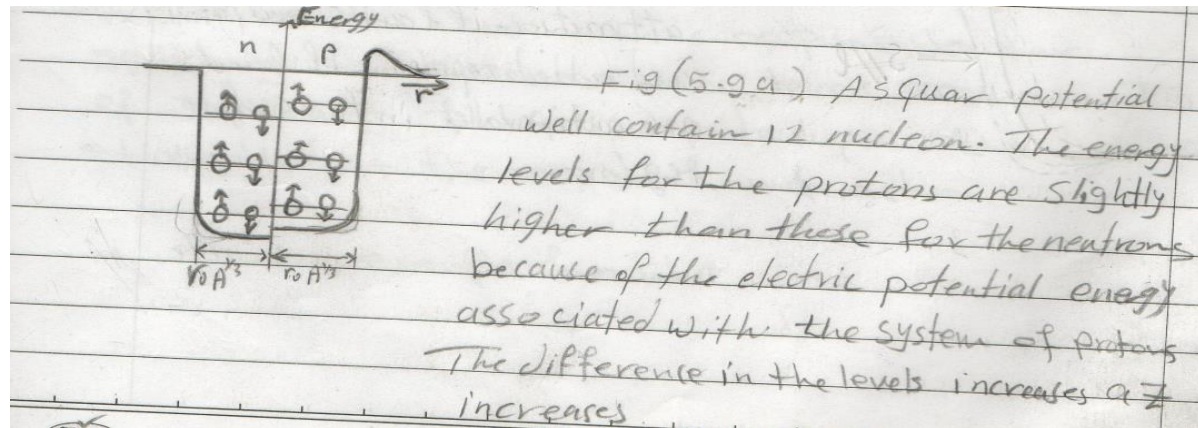 Energy
n p
r
r₀A^⅓ r₀A^⅓
Fig (5.9a) A squar potential
well contain 12 nucleon. The energy
levels for the protons are slightly
higher than those for the neutrons
because of the electric potential enegy
associated with the system of protons
The difference in the levels increases a Z
increases.